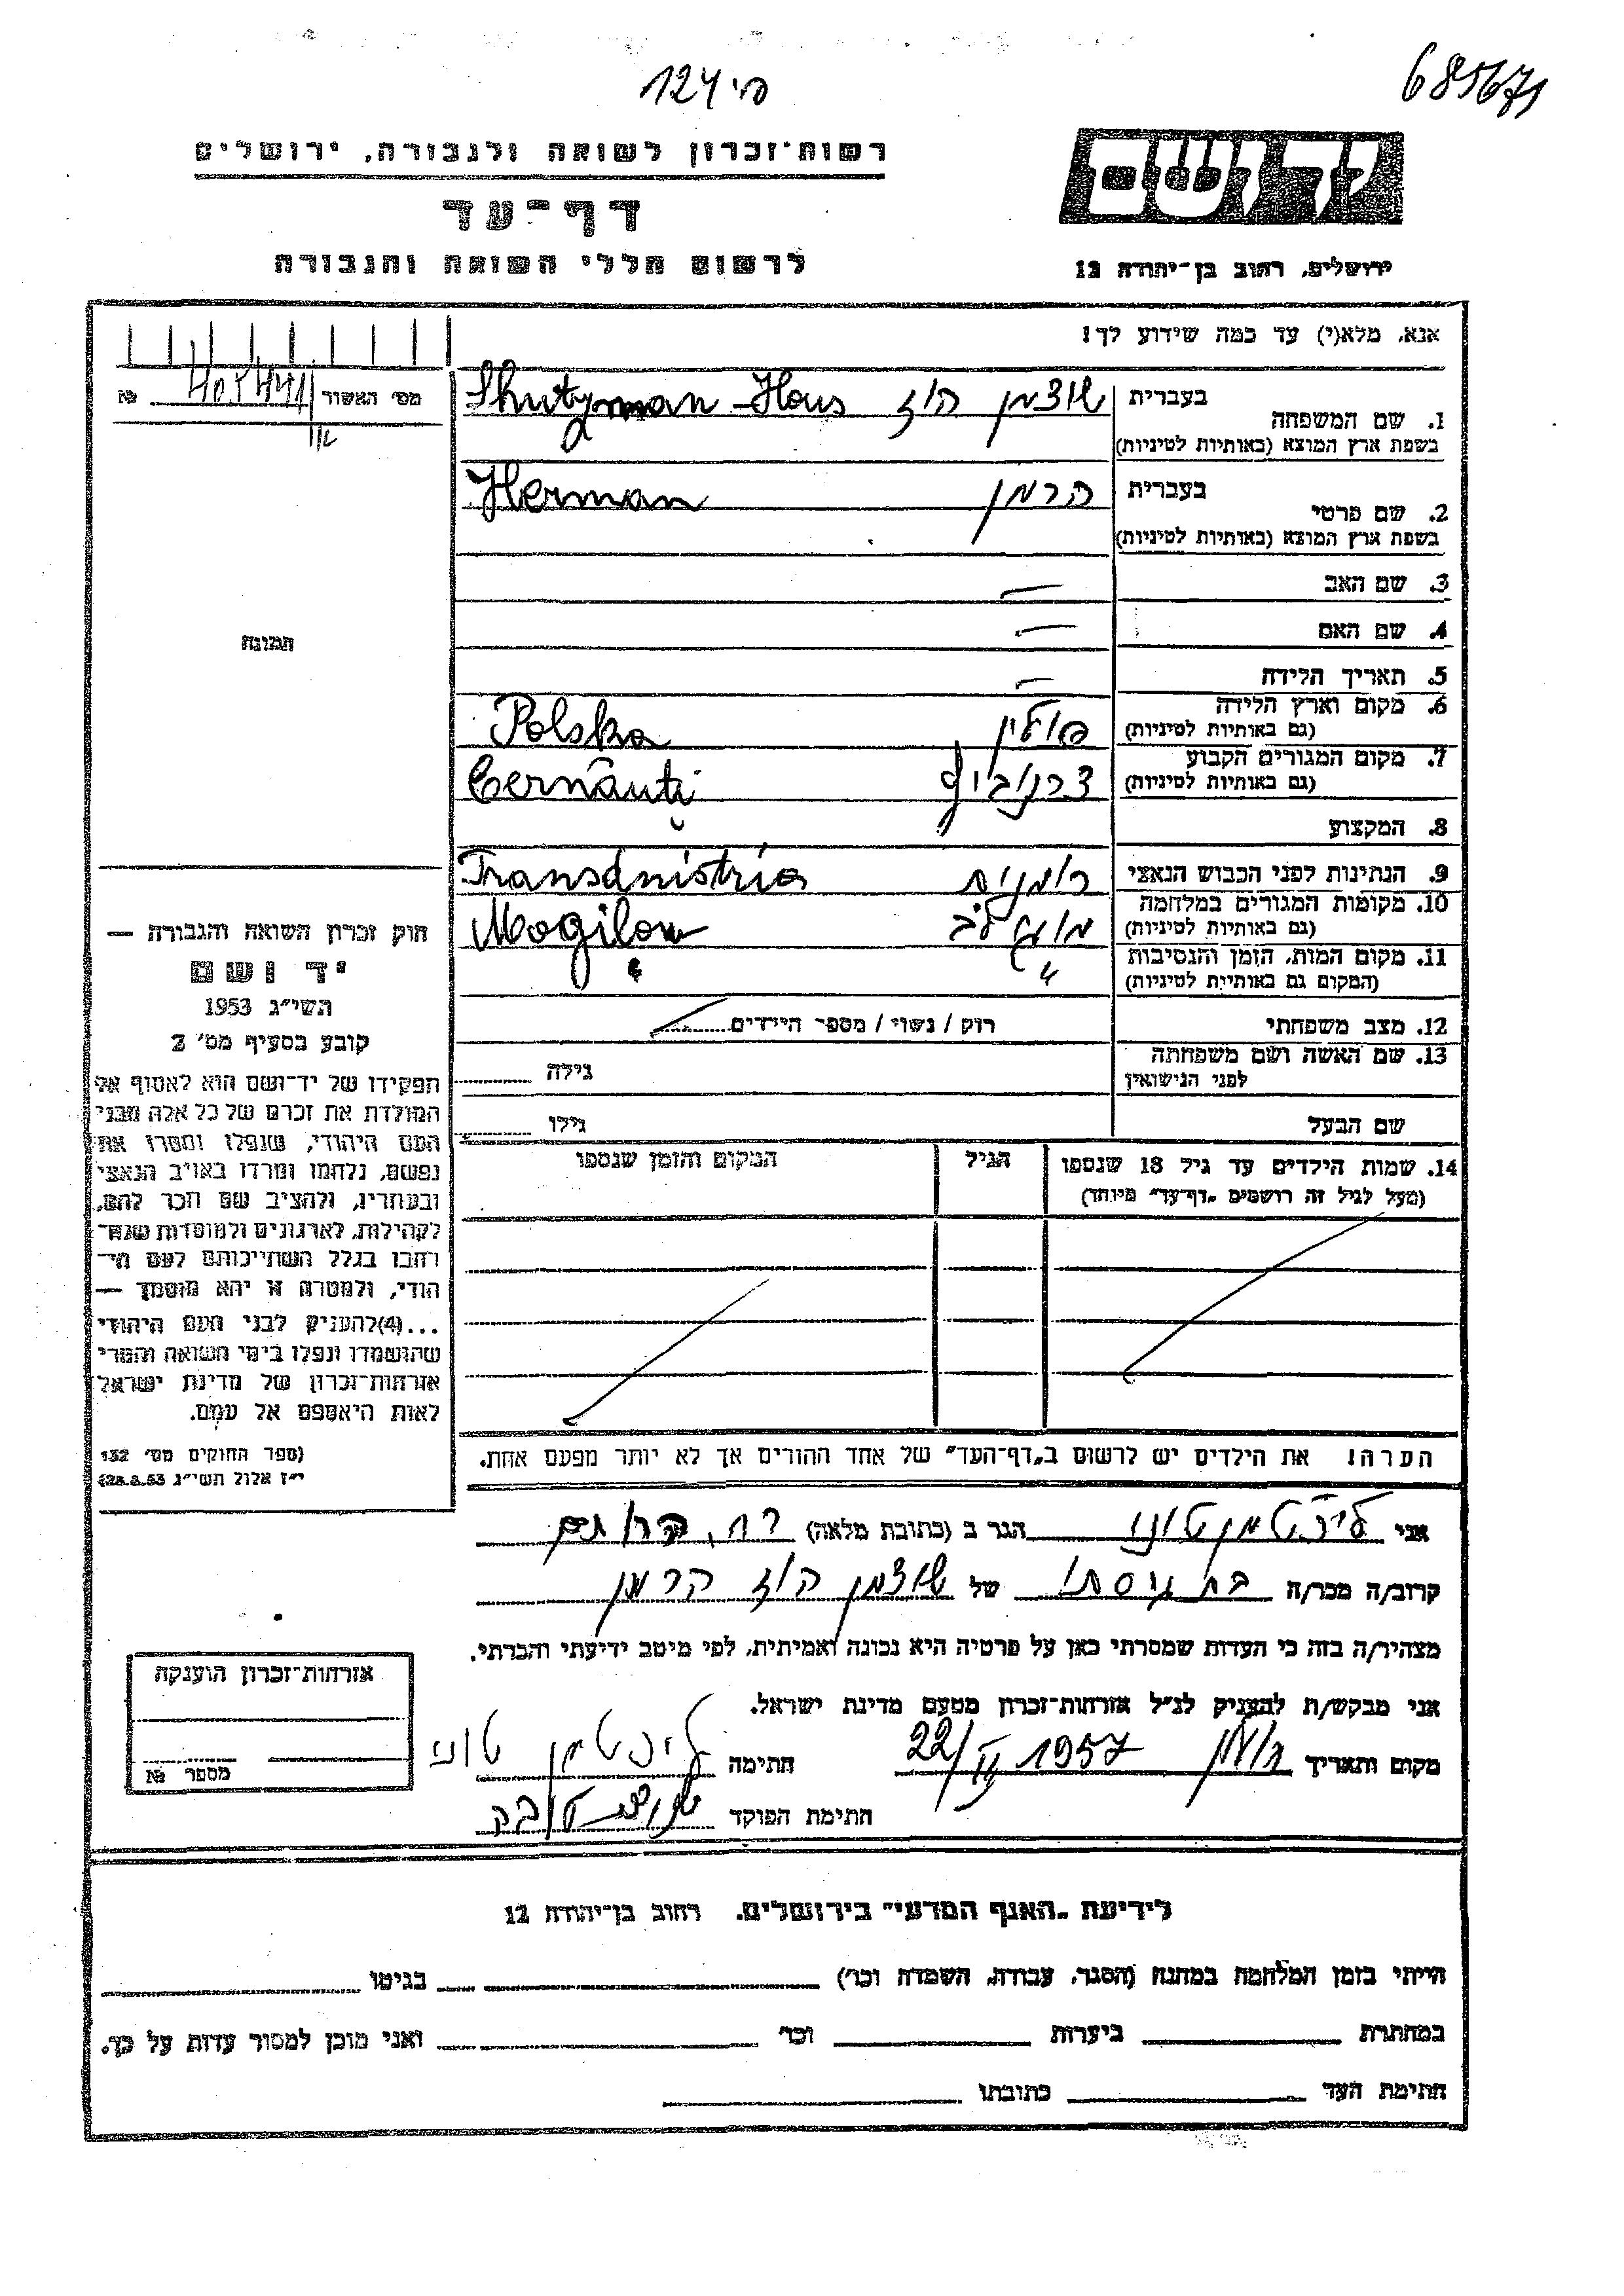 פי 124
685671
רשות־זכרון לשואה ולגבורה, ירושלים
דף־עד
לרשום חללי השואה והגבורה
יד ושם
ירושלים, רחוב בן־יהודה 12
אנא, מלא(י) עד כמה שידוע לך!
מס׳ האשור №
1. שם המשפחה בעברית שוצמן הוז Shutzman-Hous
בשפת ארץ המוצא (באותיות לטיניות)
2. שם פרטי בעברית הרמן Herman
בשפת ארץ המוצא (באותיות לטיניות)
3. שם האב —
4. שם האם —
תמונה
5. תאריך הלידה —
6. מקום וארץ הלידה פולין Polska
(גם באותיות לטיניות)
7. מקום המגורים הקבוע צרנוביץ Cernăuţi
(גם באותיות לטיניות)
8. המקצוע
9. הנתינות לפני הכבוש הנאצי רומנית Transdnistria
10. מקומות המגורים במלחמה מוגילב Mogilow
(גם באותיות לטיניות)
11. מקום המות, הזמן והנסיבות
(המקום גם באותיות לטיניות)
12. מצב משפחתי רוק / נשוי / מספר הילדים
13. שם האשה ושם משפחתה לפני הנישואין גילה
שם הבעל גילו
14. שמות הילדים עד גיל 18 שנספו הגיל המקום והזמן שנספו
(מעל לגיל זה רושמים „דף־עד״ מיוחד)
חוק זכרון השואה והגבורה —
יד ושם
תשי״ג 1953
קובע בסעיף מס׳ 2
תפקידו של יד־ושם הוא לאסוף אל
המולדת את זכרם של כל אלה מבני
העם היהודי, שנפלו ומסרו את
נפשם, נלחמו ומרדו באויב הנאצי
ובעוזריו, ולהציב שם וזכר להם,
לקהילות, לארגונים ולמוסדות שנח־
רבו בגלל השתייכותם לעם הי־
הודי, ולמטרה זו יהא מוסמך —
...(4)להעניק לבני העם היהודי
שהושמדו ונפלו בימי השואה והמרי
אזרחות־זכרון של מדינת ישראל
לאות היאספם אל עמם.
(ספר החוקים מס׳ 132
י״ז אלול תשי״ג 28.8.53)
הערה! את הילדים יש לרשום ב„דף־העד״ של אחד ההורים אך לא יותר מפעם אחת.
אני ליכטמן טוני הגר ב (כתובת מלאה)
קרוב/ה מכר/ה בת גיסתו של שוצמן הוז הרמן
מצהיר/ה בזה כי העדות שמסרתי כאן על פרטיה היא נכונה ואמיתית, לפי מיטב ידיעתי והכרתי.
אני מבקש/ת להעניק לנ״ל אזרחות־זכרון מטעם מדינת ישראל.
מקום ותאריך 22/II 1957 חתימה ליכטמן טוני
חתימת הפוקד
אזרחות־זכרון הוענקה
מספר №
לידיעת „האגף המדעי״ בירושלים. רחוב בן־יהודה 12
הייתי בזמן המלחמה במחנה (הסגר, עבודה, השמדה וכו׳) בגיטו
במחתרת ביערות וכו׳ ואני מוכן למסור עדות על כך.
חתימת העד כתובתו